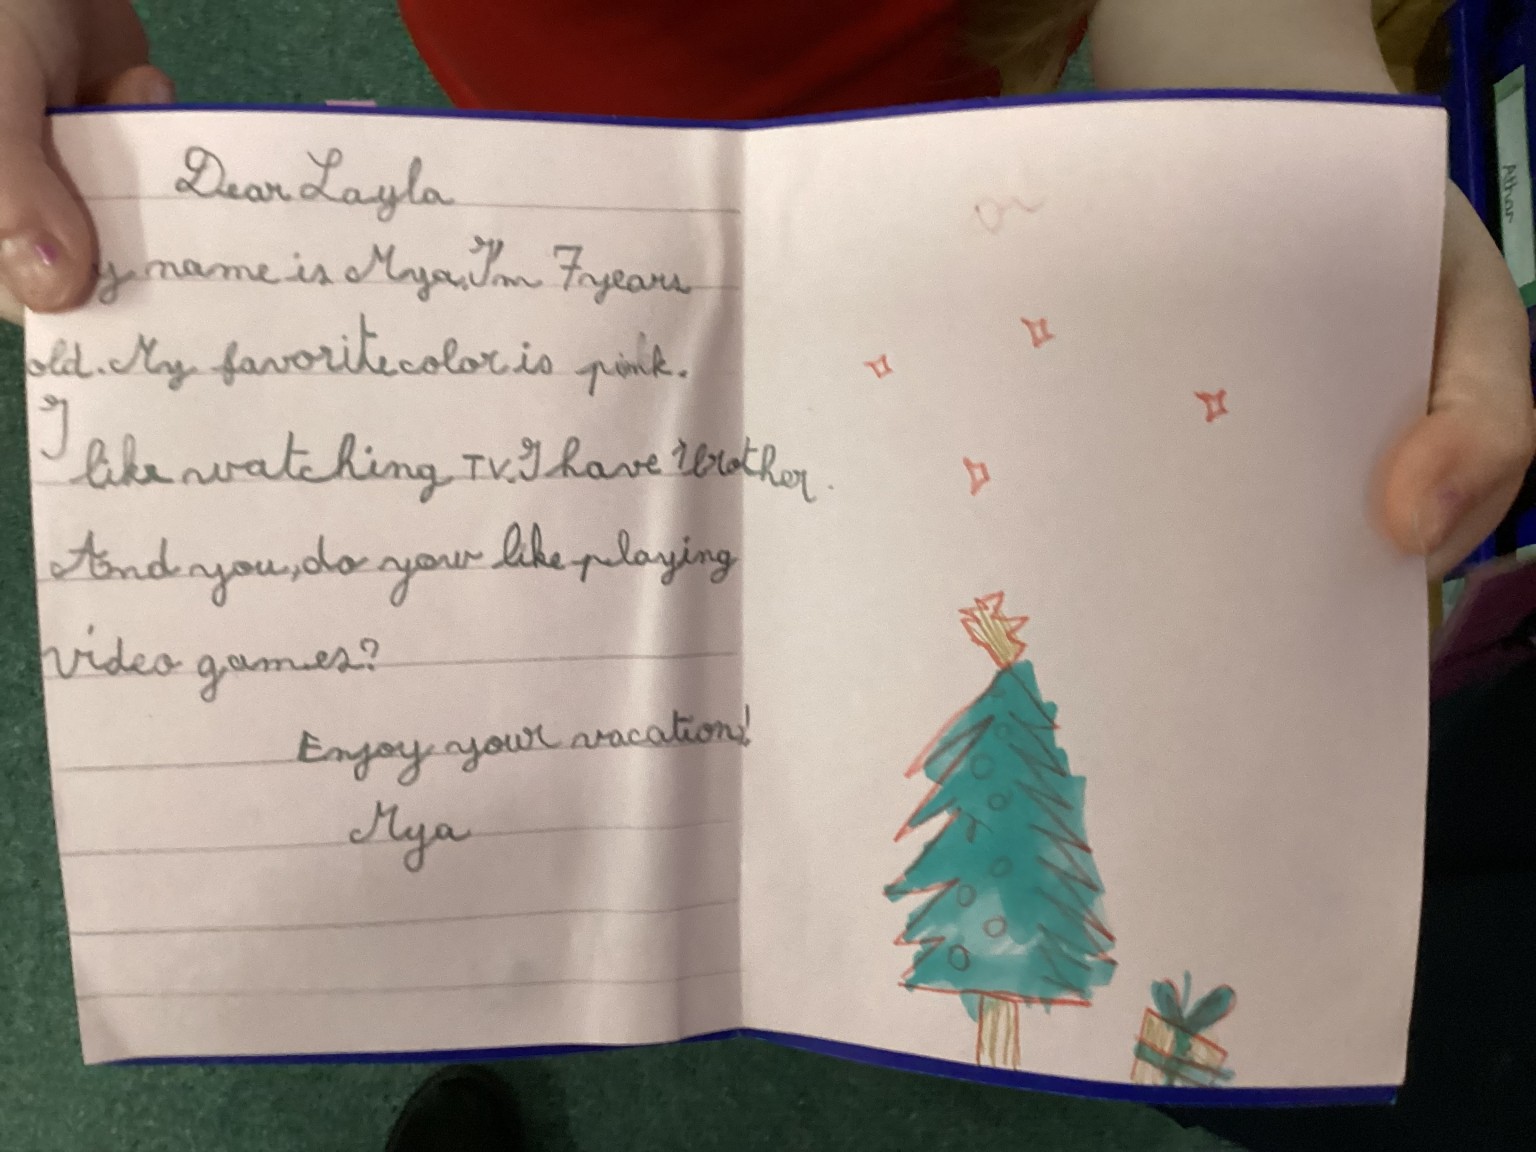 Dear Layla
y name is Mya, I'm 7 years
old. My favorite color is pink.
I
like watching TV. I have 1 brother.
And you, do your like playing
video games?
Enjoy your vacation!
Mya
or
Athar